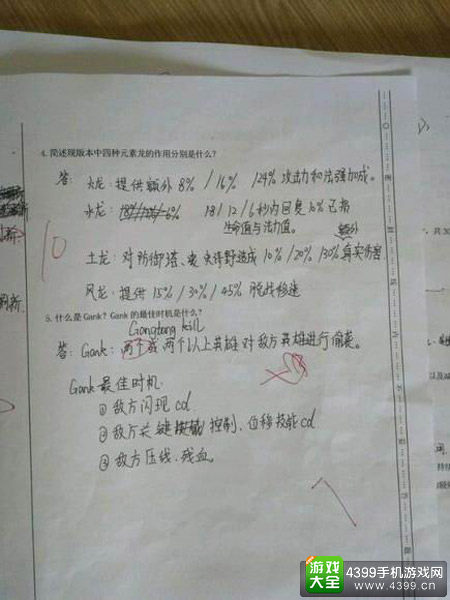 4. 简述现版本中四种元素龙的作用分别是什么?
答: 火龙: 提供额外 8% / 16% / 24% 攻击力和法强加成。
水龙: 18 / 12 / 6 秒内回复 10% 已损
生命值与法力值。
额外
土龙: 对防御塔、史诗野造成 10% / 20% / 30% 真实伤害
10
风龙: 提供 15% / 30% / 45% 脱战移速
5. 什么是 Gank? Gank 的最佳时机是什么?
Gangtong kill
答: Gank: 两个或两个以上英雄对敌方英雄进行偷袭。
Gank 最佳时机:
① 敌方闪现 cd
② 敌方关键技能 控制、位移技能 cd
③ 敌方压线、残血。
7
游戏大全
4399手机游戏网
www.4399.cn